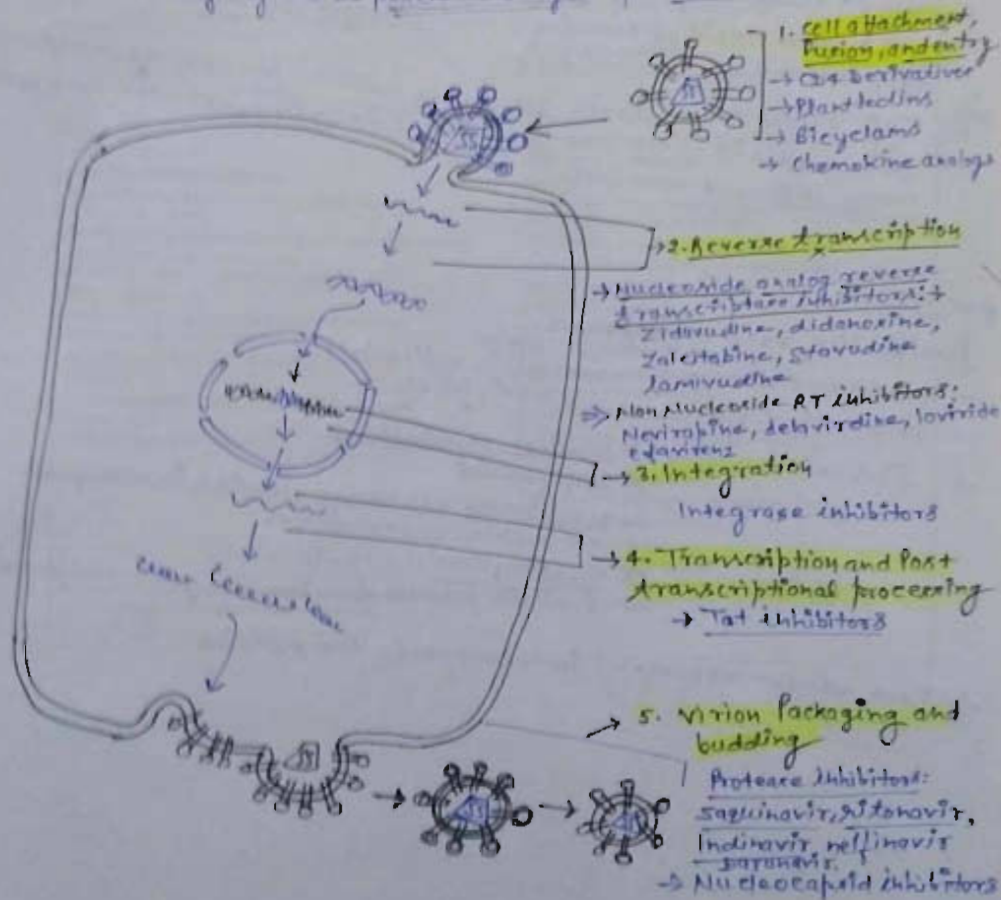 1. cell attachment,
Fusion, and entry
→ CD4 Derivatives
→ Plant lectins
→ Bicyclams
→ Chemokine analogs
→ 2. Reverse transcription
→ Nucleoside analog reverse
transcriptase inhibitors:
Zidovudine, didanosine,
Zalcitabine, Stavudine
lamivudine
⇒ Non Nucleoside RT inhibitors:
Nevirapine, delavirdine, loviride
efavirenz
→ 3. Integration
Integrase inhibitors
→ 4. Transcription and Post
transcriptional processing
→ Tat inhibitors
→ 5. Virion Packaging and
budding
Protease inhibitors:
saquinavir, ritonavir,
Indinavir, nelfinavir
→ Nucleocapsid inhibitors